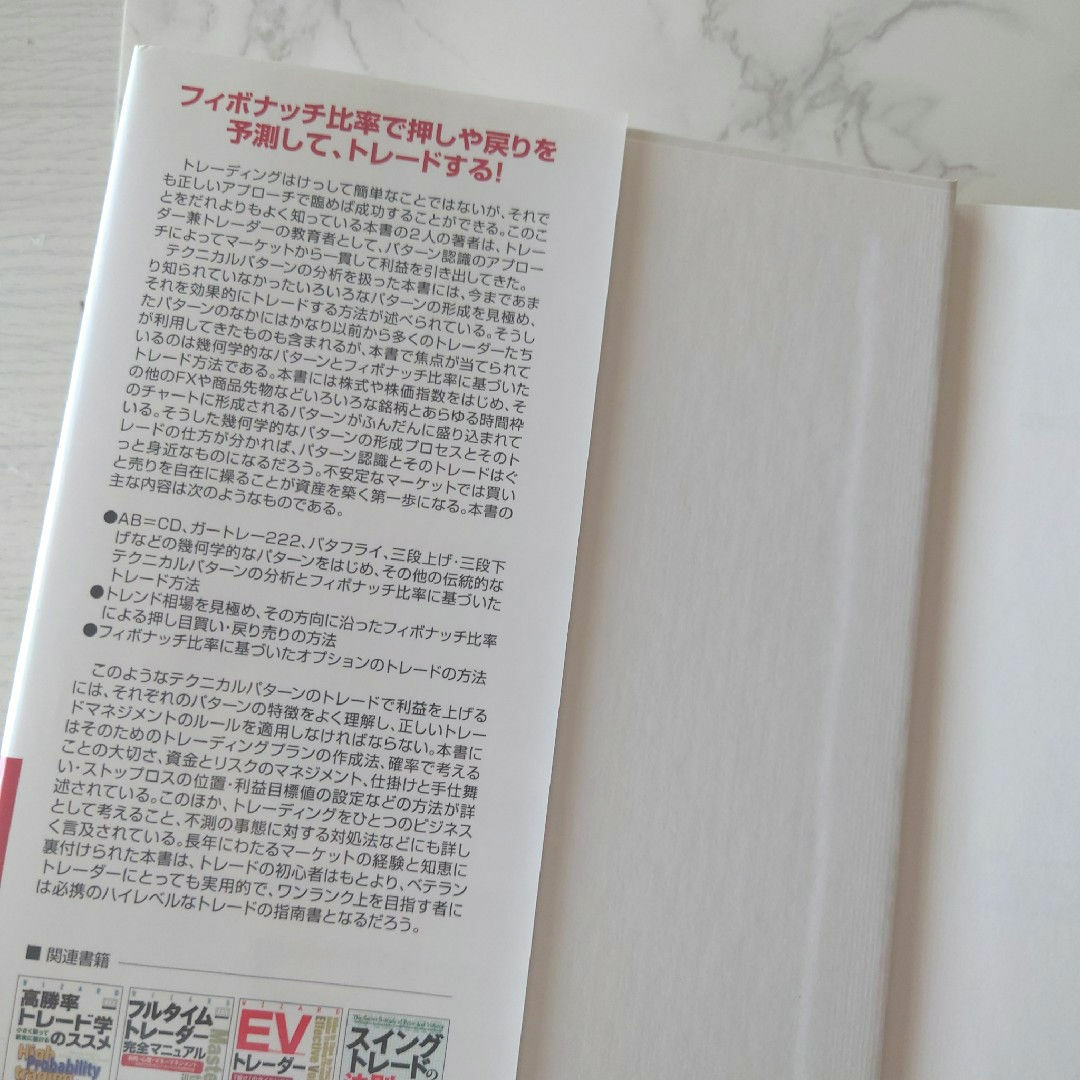 フィボナッチ比率で押しや戻りを
予測して、トレードする！
トレーディングはけっして簡単なことではないが、それで
も正しいアプローチで臨めば成功することができる。このこ
とをだれよりもよく知っている本書の2人の著者は、トレー
ダー兼トレーダーの教育者として、パターン認識のアプロー
チによってマーケットから一貫して利益を引き出してきた。
テクニカルパターンの分析を扱った本書には、今まであま
り知られていなかったいろいろなパターンの形成を見極め、
それを効果的にトレードする方法が述べられている。そうし
たパターンのなかにはかなり以前から多くのトレーダーたち
が利用してきたものも含まれるが、本書で焦点が当てられて
いるのは幾何学的なパターンとフィボナッチ比率に基づいた
トレード方法である。本書には株式や株価指数をはじめ、そ
の他のFXや商品先物などいろいろな銘柄とあらゆる時間枠
のチャートに形成されるパターンがふんだんに盛り込まれて
いる。そうした幾何学的なパターンの形成プロセスとそのト
レードの仕方が分かれば、パターン認識とそのトレードはぐ
っと身近なものになるだろう。不安定なマーケットでは買い
と売りを自在に操ることが資産を築く第一歩になる。本書の
主な内容は次のようなものである。
●AB＝CD、ガートレー222、バタフライ、三段上げ・三段下
げなどの幾何学的なパターンをはじめ、その他の伝統的な
テクニカルパターンの分析とフィボナッチ比率に基づいた
トレード方法
●トレンド相場を見極め、その方向に沿ったフィボナッチ比率
による押し目買い・戻り売りの方法
●フィボナッチ比率に基づいたオプションのトレードの方法
このようなテクニカルパターンのトレードで利益を上げる
には、それぞれのパターンの特徴をよく理解し、正しいトレー
ドマネジメントのルールを適用しなければならない。本書に
はそのためのトレーディングプランの作成法、確率で考える
ことの大切さ、資金とリスクのマネジメント、仕掛けと手仕舞
い・ストップロスの位置・利益目標値の設定などの方法が詳
述されている。このほか、トレーディングをひとつのビジネス
として考えること、不測の事態に対する対処法などにも詳し
く言及されている。長年にわたるマーケットの経験と知恵に
裏付けられた本書は、トレードの初心者はもとより、ベテラン
トレーダーにとっても実用的で、ワンランク上を目指す者に
は必携のハイレベルなトレードの指南書となるだろう。
■ 関連書籍
高勝率
トレード学
のススメ
High
Probability
フルタイム
トレーダー
完全マニュアル
EV
トレーダー
スイング
トレードの